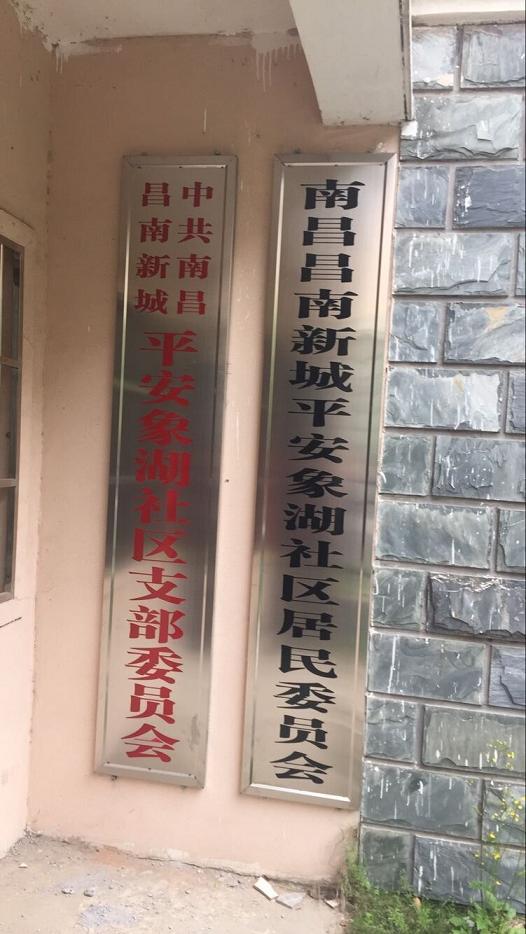 中共南昌
昌南新城
平安象湖社区支部委员会
南昌昌南新城平安象湖社区居民委员会